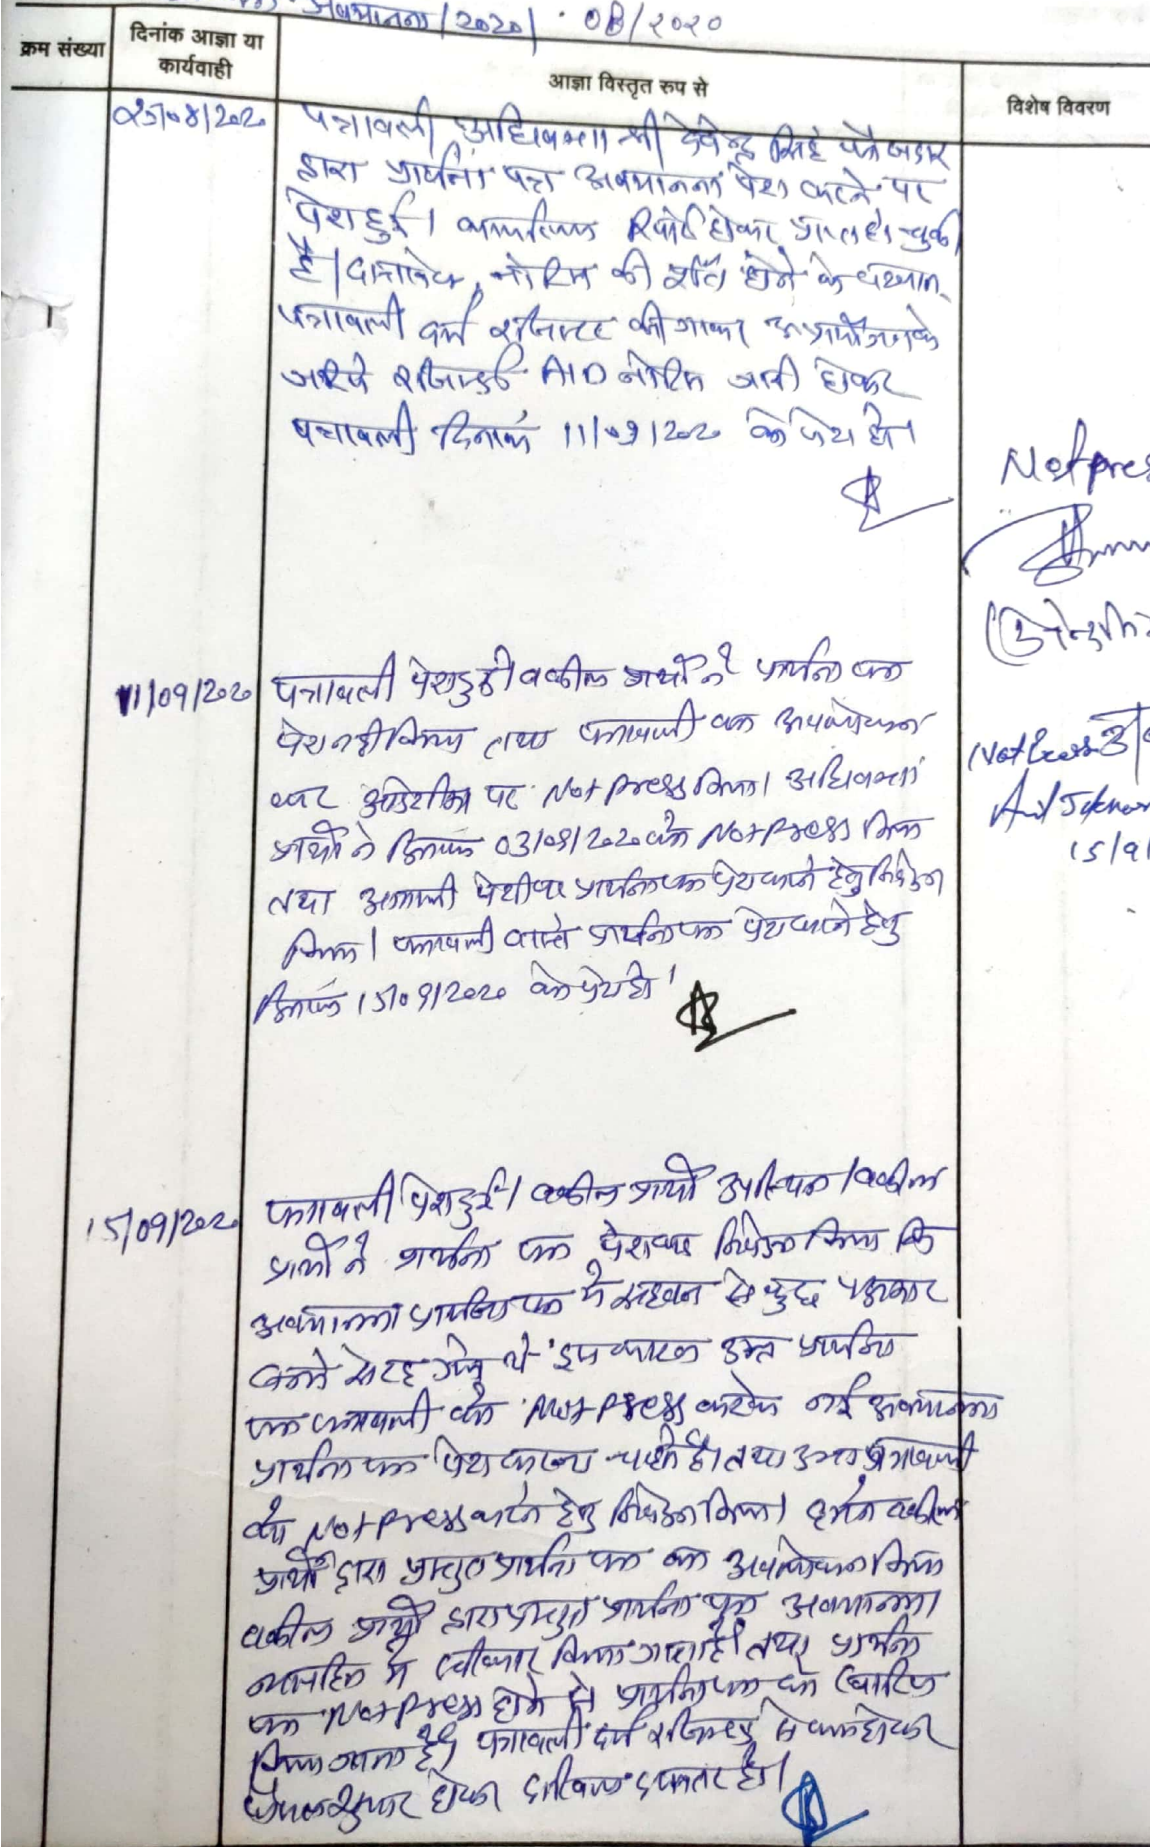 अवमानना/2020/ 08/2020
क्रम संख्या
दिनांक आज्ञा या
कार्यवाही
आज्ञा विस्तृत रुप से
विशेष विवरण
25/08/2020
पत्रावली अधिवक्ता श्री देवेन्द्र सिंह फौजदार
द्वारा प्रार्थना पत्र अवमानना पेश करने पर
पेश हुई। कार्यालय रिपोर्ट होकर प्राप्त हो चुकी
है। नोटिस की पूर्ति होने के पश्चात
पत्रावली दर्ज रजिस्टर की जाकर अप्रार्थीगण के
जरिये रजिस्टर्ड AD नोटिस जारी होकर
पत्रावली दिनांक 11/09/2020 को पेश हो।
Not pres
11/09/2020
पत्रावली पेश हुई। वकील प्रार्थी ने प्रार्थना पत्र
पेश नही किया तथा पत्रावली का अवलोकन
कर आदेशिका पर Not Press किया। अधिवक्ता
प्रार्थी ने दिनांक 03/09/2020 को Not Press किया
तथा आगामी पेशी पर प्रार्थना पत्र पेश करने हेतु निवेदन
किया। पत्रावली वास्ते प्रार्थना पत्र पेश करने हेतु
दिनांक 15/09/2020 को पेश हो।
Not Press
15/9/
15/09/2020
पत्रावली पेश हुई। वकील प्रार्थी उपस्थित। वकील
प्रार्थी ने प्रार्थना पत्र पेश कर निवेदन किया कि
अवमानना प्रार्थना पत्र में सहवन से कुछ पक्षकार
बनने से रह गये थे इस कारण उक्त प्रार्थना
पत्र पत्रावली को Not Press करके नई अवमानना
प्रार्थना पत्र पेश करना चाहते है। तथा उक्त पत्रावली
को Not Press करने हेतु निवेदन किया। हमने वकील
प्रार्थी द्वारा प्रस्तुत प्रार्थना पत्र का अवलोकन किया
वकील प्रार्थी द्वारा प्रस्तुत प्रार्थना पत्र अवमानना
न्यायहित में स्वीकार किया जाता है। तथा प्रार्थना
पत्र Not Press होने से प्रार्थना पत्र को खारिज
किया जाता है। पत्रावली दर्ज रजिस्टर्ड से कम होकर
फैसल शुमार होकर दाखिल दफ्तर हो।